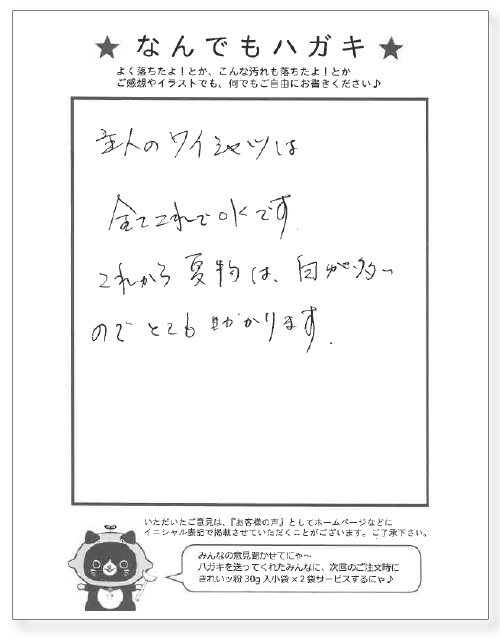 ★ なんでもハガキ ★
よく落ちたよ！とか、こんな汚れも落ちたよ！とか
ご感想やイラストでも、何でもご自由にお書きください♪
主人のワイシャツは
全てこれでOKです.
これから夏物は、白が多い
のでとても助かります.
いただいたご意見は、『お客様の声』としてホームページなどに
イニシャル表記で掲載させていただくことがございます。ご了承下さい。
みんなの意見聞かせてにゃ～
ハガキを送ってくれたみんなに、次回のご注文時に
きれいッ粉30g入小袋×2袋サービスするにゃ♪